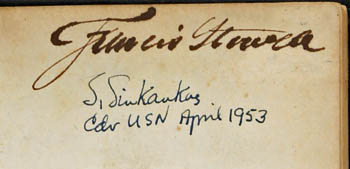 Francis
J. Sinkankas
Cdr USN April 1953